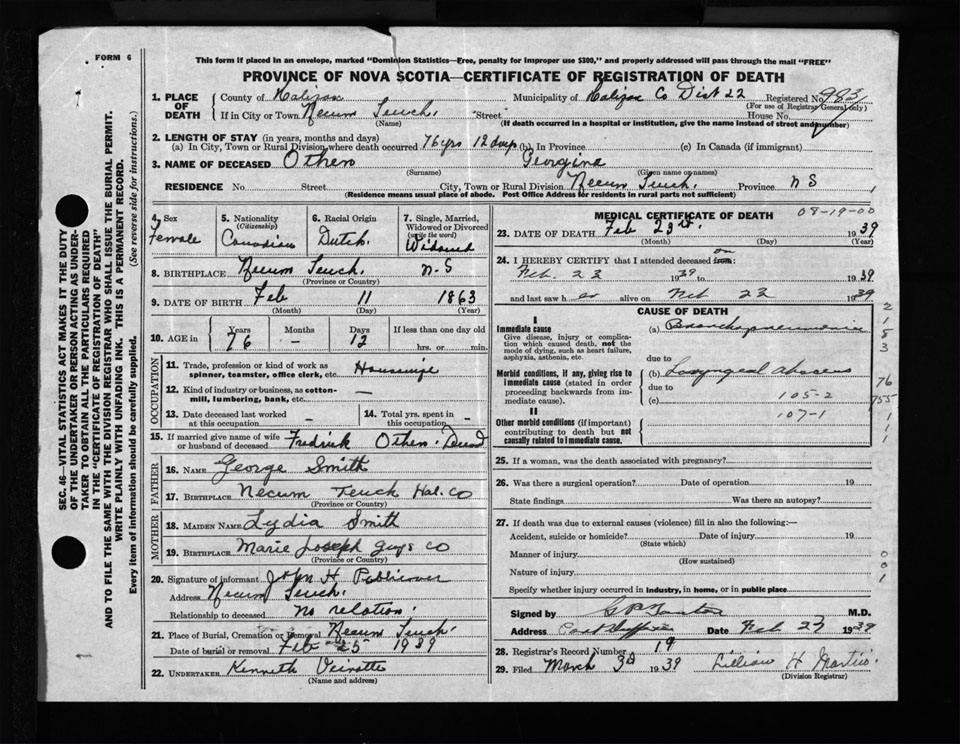 FORM 6
This form if placed in an envelope, marked "Dominion Statistics—Free, penalty for improper use $300," and properly addressed will pass through the mail "FREE"
PROVINCE OF NOVA SCOTIA—CERTIFICATE OF REGISTRATION OF DEATH
1. PLACE OF DEATH County of Halifax Municipality of Halifax Co Dist 22 Registered No. 983
(For use of Registrar General only)
If in City or Town Necum Teuch. Street House No.
(Name) (If death occurred in a hospital or institution, give the name instead of street and number)
2. LENGTH OF STAY (in years, months and days)
(a) In City, Town or Rural Division where death occurred 76 yrs 12 days (b) In Province (c) In Canada (if immigrant)
3. NAME OF DECEASED Othen Georgina
(Surname) (Given name or names)
RESIDENCE No. Street City, Town or Rural Division Necum Teuch. Province N S
(Residence means usual place of abode. Post Office Address for residents in rural parts not sufficient)
SEC. 46—VITAL STATISTICS ACT MAKES IT THE DUTY
OF THE UNDERTAKER OR PERSON ACTING AS UNDER-
TAKER TO OBTAIN ALL THE PARTICULARS REQUIRED
IN THE "CERTIFICATE OF REGISTRATION OF DEATH"
AND TO FILE THE SAME WITH THE DIVISION REGISTRAR WHO SHALL ISSUE THE BURIAL PERMIT.
WRITE PLAINLY WITH UNFADING INK. THIS IS A PERMANENT RECORD.
Every item of information should be carefully supplied. (See reverse side for instructions.)
4. Sex Female
5. Nationality (Citizenship) Canadian
6. Racial Origin Dutch.
7. Single, Married, Widowed or Divorced (write the word) Widowed
8. BIRTHPLACE Necum Teuch. N-S
(Province or Country)
9. DATE OF BIRTH Feb 11 1863
(Month) (Day) (Year)
10. AGE in Years 76 Months — Days 12 If less than one day old
hrs. or min.
OCCUPATION
11. Trade, profession or kind of work as spinner, teamster, office clerk, etc. Housewife
12. Kind of industry or business, as cotton-mill, lumbering, bank, etc. —
13. Date deceased last worked at this occupation —
14. Total yrs. spent in this occupation —
15. If married give name of wife or husband of deceased Fredrick Othen. Decsd
FATHER
16. NAME George Smith
17. BIRTHPLACE Necum Teuch Hal. Co
(Province or Country)
MOTHER
18. MAIDEN NAME Lydia Smith
19. BIRTHPLACE Marie Joseph Guys Co
(Province or Country)
20. Signature of informant John H Publicover
Address Necum Teuch.
Relationship to deceased no relation.
21. Place of Burial, Cremation or Removal Necum Teuch.
Date of burial or removal Feb 25 1939
22. UNDERTAKER Kenneth
(Name and address)
MEDICAL CERTIFICATE OF DEATH 08-19-00
23. DATE OF DEATH Feb 23rd. 1939
(Month) (Day) (Year)
24. I HEREBY CERTIFY that I attended deceased from: on
Feb. 23 1939 to 1939
and last saw her alive on Feb 23 1939
CAUSE OF DEATH
I
Immediate cause
Give disease, injury or complication which caused death, not the mode of dying, such as heart failure, asphyxia, asthenia, etc.
(a) Bronchopneumonia
due to
Morbid conditions, if any, giving rise to immediate cause (stated in order proceeding backwards from immediate cause).
(b) Laryngeal abscess
due to
(c) 105-2
II
107-1
Other morbid conditions (if important) contributing to death but not causally related to immediate cause.
2
1
5
3
76
755
1
1
25. If a woman, was the death associated with pregnancy?
26. Was there a surgical operation? Date of operation 19
State findings Was there an autopsy?
27. If death was due to external causes (violence) fill in also the following:—
Accident, suicide or homicide? Date of injury 19
(State which)
Manner of injury
(How sustained)
Nature of injury
Specify whether injury occurred in industry, in home, or in public place
0
0
1
Signed by M.D.
Address Date Feb 27 1939
28. Registrar's Record Number 19
29. Filed March 3rd 1939 Lillian H Martin.
(Division Registrar)